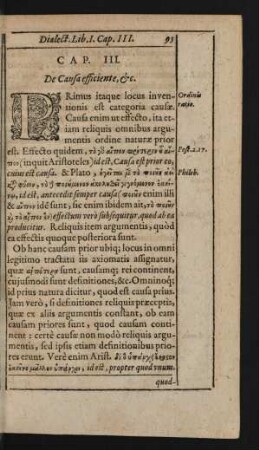 Dialect. Lib. I. Cap. III. 95
CAP. III.
De Causa efficiente, &c.
PRimus itaque locus inven-
tionis est categoria causæ
Causa enim ut effecto, ita et-
iam reliquis omnibus argu-
mentis ordine naturæ prior
est. Effecto quidem,
(inquit Aristoteles) id est, Causa est prior eo,
cuius est causa. & Plato,
id est, anteredit semper causa ( enim illi
& idem sunt, sic enim ibidem ait,
) effectum verò subsequitur, quod ab ea
producitur. Reliquis item argumentis, quòd
ea effectis quoque posteriora sunt.
Ob hanc causam prior ubiq; locus in omni
legitimo tractatu iis axiomatis assignatur,
quæ sunt, causamq; rei continent,
cujusmodi sunt definitiones, &c. Omninoq;
id prius natura dicitur, quod est causa prius.
Jam verò, si definitiones reliquis præceptis,
quæ ex aliis argumentis constant, ob eam
causam priores sunt, quod causam conti-
nent: certè causæ non modò reliquis argu-
mentis, sed ipsis etiam definitionibus prio-
res erunt. Verè enim Arist.
id est, propter quod vnum-
quod-
Ordinis
ratio.
Post. 2. 17.
Phileb.